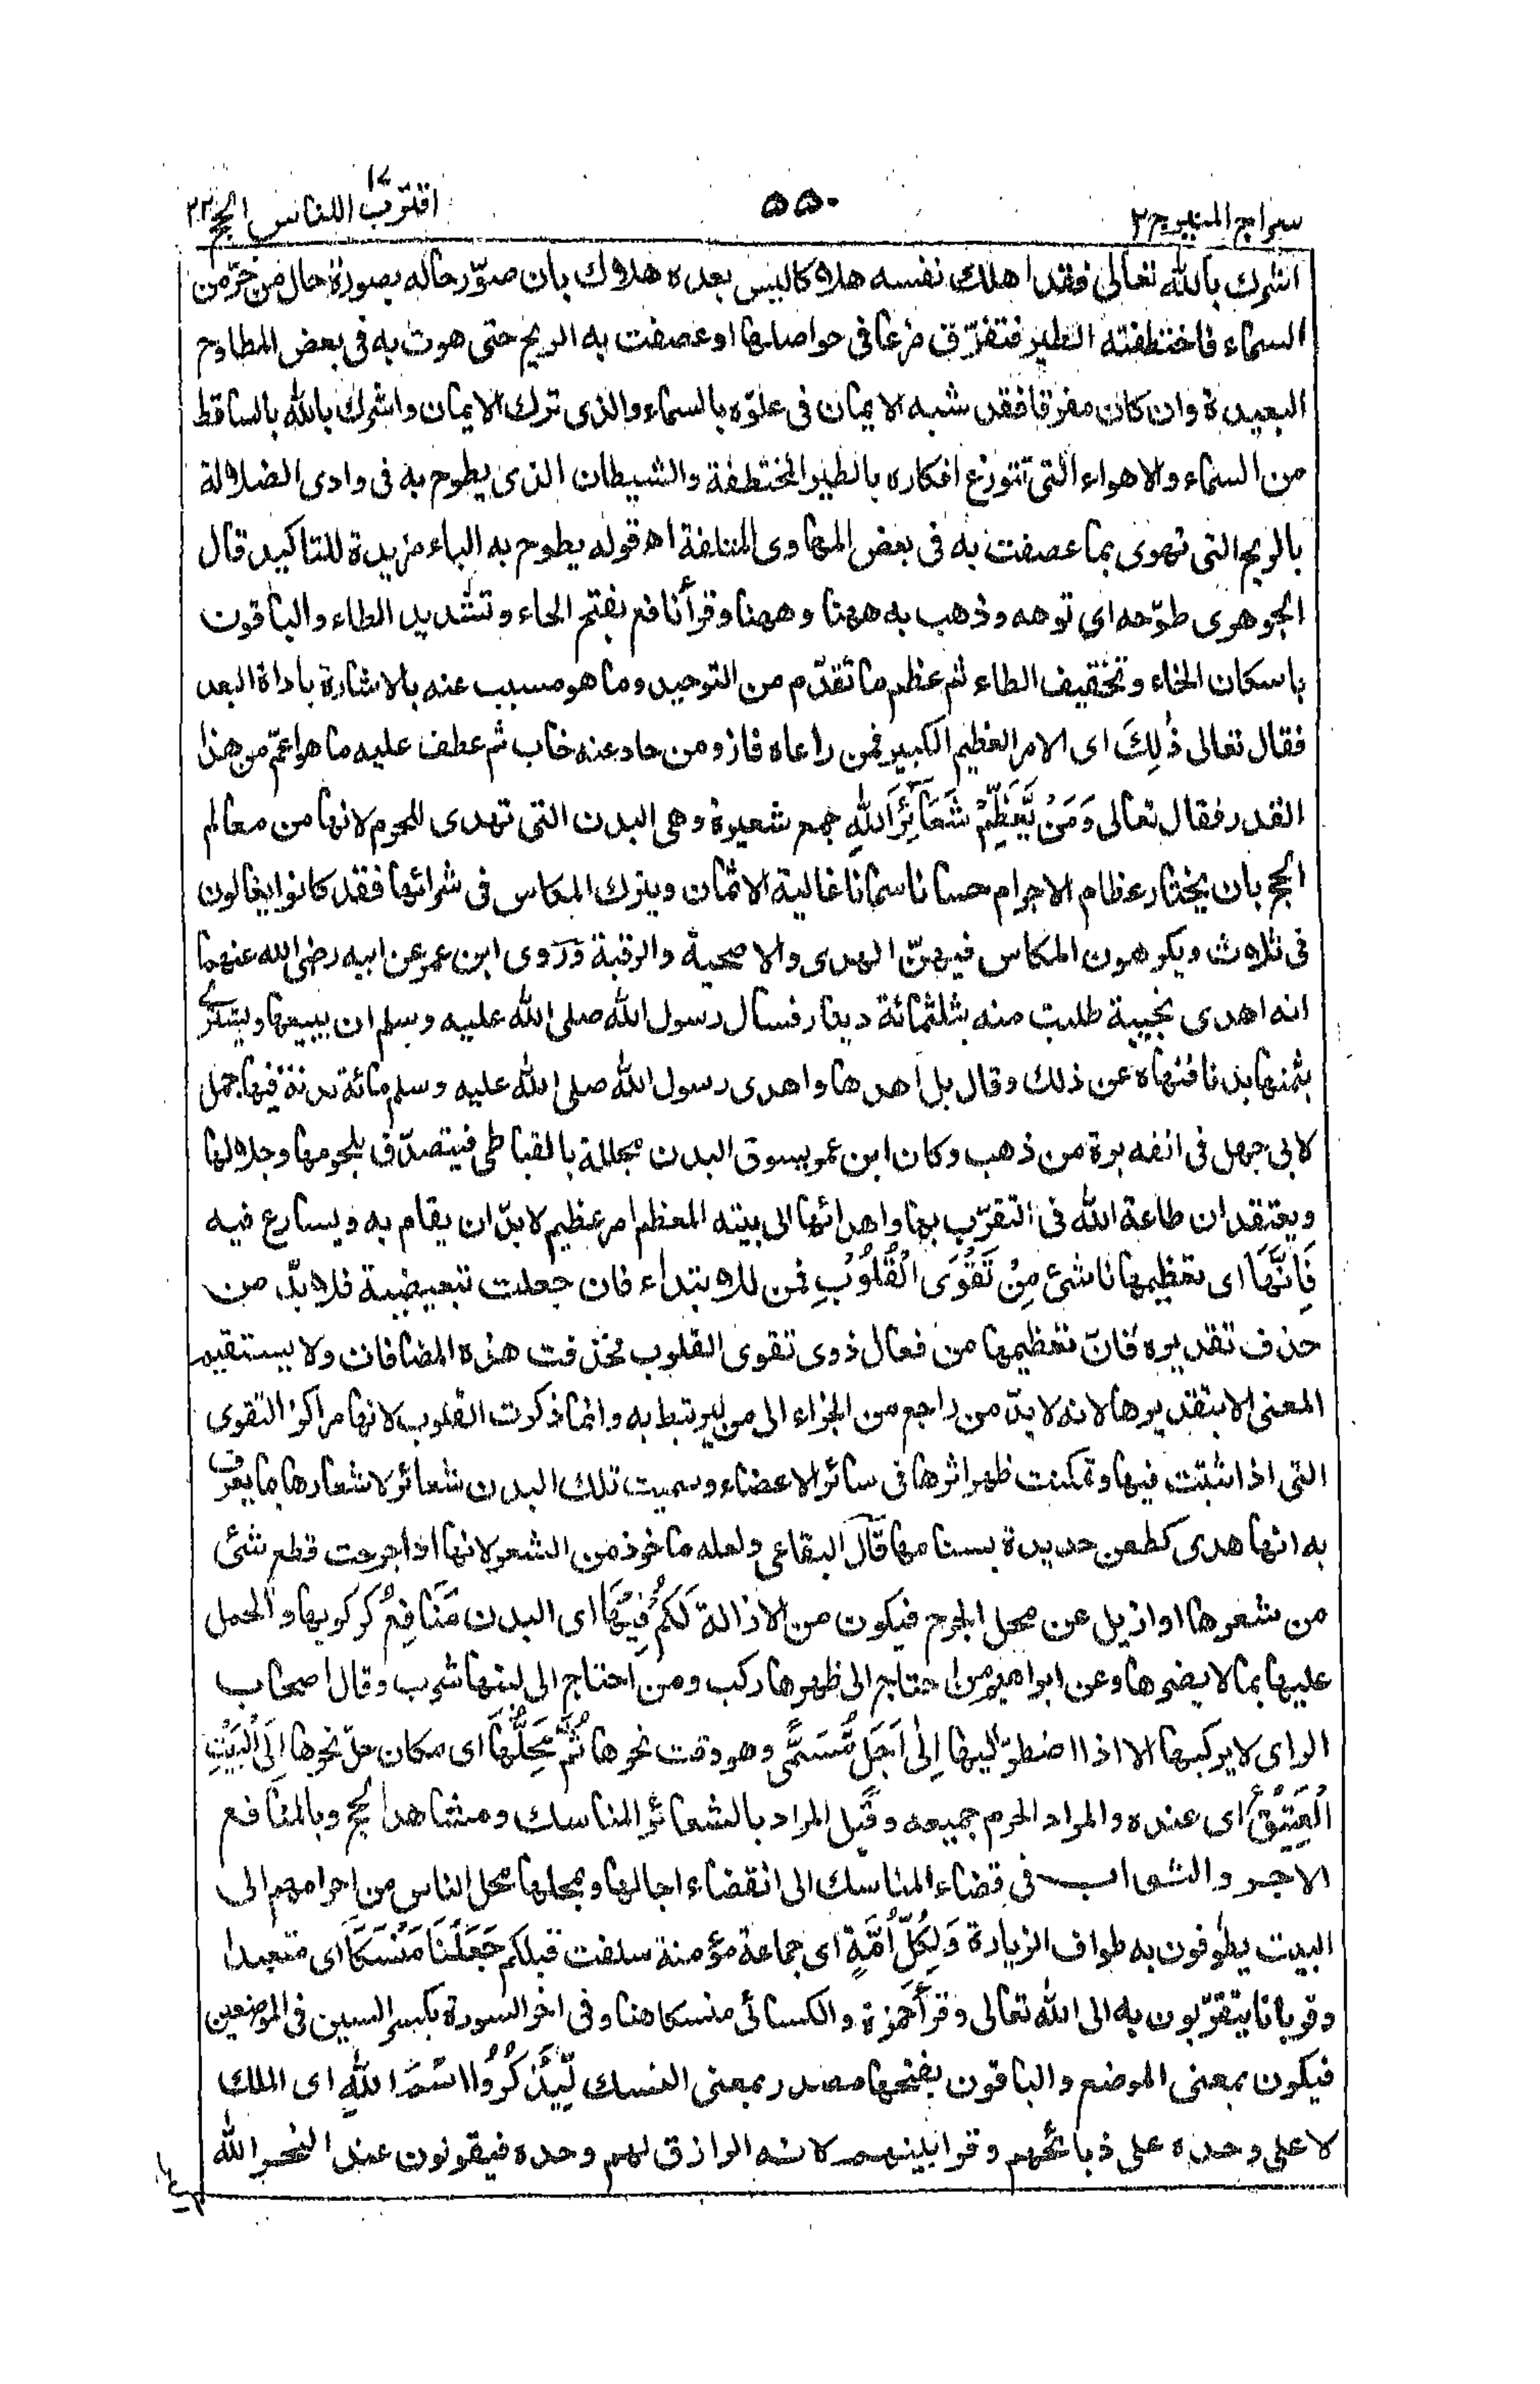 سراج المنير ج ٢
٥٥٠
اقترب للناس ١٧ الحج ٢٢
اشرك بالله تعالى فقد اهلك نفسه هلاكا ليس بعده هلاك بان صوّر حاله بصورة حال من خرّ من
السماء فاختطفته الطير فتفرّق مزعا فى حواصلها او عصفت به الريح حتى هوت به فى بعض المطاوح
البعيدة وان كان مفرقا فقد شبه الايمان فى علوّه بالسماء والذى ترك الايمان واشرك بالله بالساقط
من السماء والاهواء التى تتوزع افكاره بالطير المختطفة والشيطان الذى يطوح به فى وادى الضلالة
بالريح التى تهوى بما عصفت به فى بعض المهاوى المتلفة اھ قوله يطوح به الباء مزيدة للتاكيد قال
الجوهرى طوّحه اى توهه وذهب به ههنا وههنا وقرأ نافع بفتح الخاء وتشديد الطاء والباقون
باسكان الخاء وتخفيف الطاء ثم عظم ما تقدّم من التوحيد وما هو مسبب عنه بالاشارة باداة البعد
فقال تعالى ذٰلِكَ اى الامر العظيم الكبير فمن راعاه فاز ومن حاد عنه خاب ثم عطف عليه ما هو اعمّ من هذا
القدر فقال تعالى وَمَنْ يُّعَظِّمْ شَعَآئِرَ اللّٰهِ جمع شعيرة وهى البدن التى تهدى للحرم لانها من معالم
الحج بان يختار عظام الاجرام حسانا سمانا غالية الاثمان ويترك المكاس فى شرائها فقد كانوا يغالون
فى ثلاث ويكرهون المكاس فيهنّ الهدى والاضحية والرقبة وروى ابن عمر عن ابيه رضى الله عنهما
انه اهدى نجيبة طلبت منه بثلثمائة دينار فسال رسول الله صلى الله عليه وسلم ان يبيعها ويشترى
بثمنها بدنا فنهاه عن ذلك وقال بل اهدها واهدى رسول الله صلى الله عليه وسلم مائة بدنة فيها جمل
لابى جهل فى انفه برة من ذهب وكان ابن عمر يسوق البدن مجللة بالقباطى فيتصدّق بلحومها وجلالها
ويعتقد ان طاعة الله فى التقرّب بها واهدائها الى بيته المعظم امر عظيم لابدّ ان يقام به ويسارع فيه
فَاِنَّهَا اى تعظيمها ناشئ مِنْ تَقْوَى الْقُلُوْبِ فمن للابتداء فان جعلت تبعيضية فلابدّ من
حذف تقديره فانّ تعظيمها من فعال ذوى تقوى القلوب فحذفت هذه المضافات ولا يستقيم
المعنى الا بتقديرها لانه لابدّ من راجع من الجزاء الى من ليرتبط به وانما ذكرت القلوب لانها مراكز التقوى
التى اذا ثبتت فيها وتمكنت ظهر اثرها فى سائر الاعضاء وسميت تلك البدن شعائر لاشعارها بما يعرف
به انها هدى كطعن حديدة بسنامها قال البقاعى ولعله ماخوذ من الشعر لانها اذا جرحت قطع شئ
من شعرها او ازيل عن محل الجرح فيكون من الازالة لَكُمْ فِيْهَا اى البدن مَنَافِعُ كركوبها والحمل
عليها بما لا يضرها وعن ابراهيم من احتاج الى ظهرها ركب ومن احتاج الى لبنها شرب وقال اصحاب
الراى لا يركبها الا اذا اضطرّ اليها اِلٰى اَجَلٍ مُّسَمًّى وهو وقت نحرها ثُمَّ مَحِلُّهَا اى مكان حلّ نحرها اِلَى الْبَيْتِ
الْعَتِيْقِ اى عنده والمراد الحرم جميعه وقيل المراد بالشعائر المناسك ومشاهد الحج وبالمنافع
الاجر والثواب فى قضاء المناسك الى انقضاء اجالها وبمحلها محل الناس من احرامهم الى
البيت يطوفون به طواف الزيارة وَلِكُلِّ اُمَّةٍ اى جماعة مؤمنة سلفت قبلكم جَعَلْنَا مَنْسَكًا اى متعبدا
وقربانا يتقرّبون به الى الله تعالى وقرأ حمزة والكسائى منسكا هنا وفى اخر السورة بكسر السين فى الموضعين
فيكون بمعنى الموضع والباقون بفتحها مصدر بمعنى النسك لِّيَذْكُرُوا اسْمَ اللّٰهِ اى الملك
لاعلى وحده على ذبائحهم وقرابينهم لانه الرازق لهم وحده فيقولون عند النحر الله